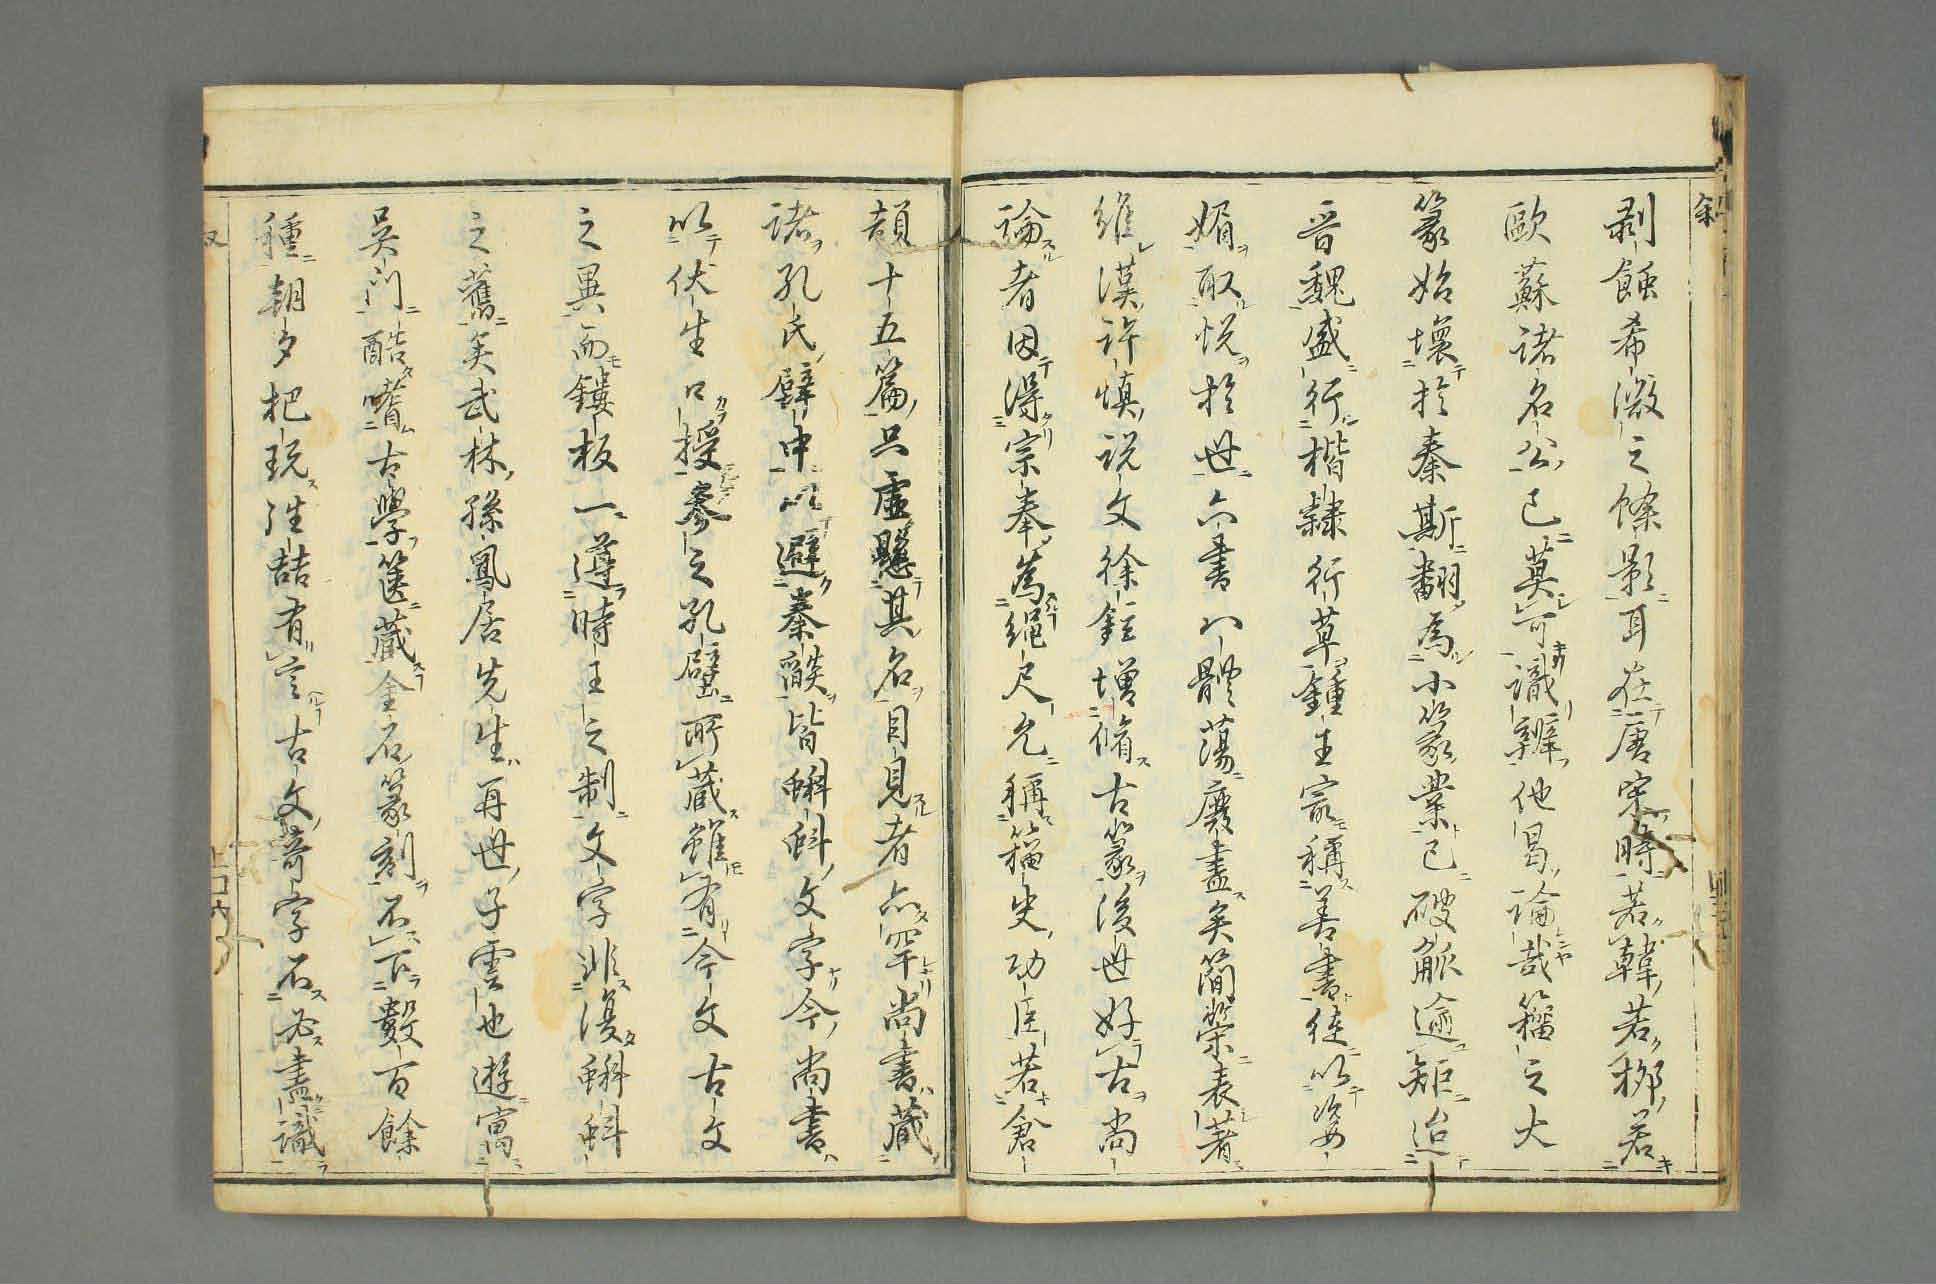 剥蝕希微之餘影耳在唐宋時若韓若柳若
歐蘇諸名公已莫可識辨他曷論哉籀之大
篆始壞於秦斯翻為小篆業已破觚逾矩迨
晋魏盛行楷隸行草鍾王家稱善書徒以姿
媚取悦於世六書八體蕩廢盡矣簡策表著
維漢許慎説文徐鉉增脩古篆後世好古尚
論者因得宗奉為繩尺允稱籀史功臣若倉
頡十五篇只虚懸其名目見者亦罕尚書蔵
諸孔氏壁中以避秦燄皆蝌蚪文字今尚書
以伏生口授參之孔壁所蔵雖有今文古文
之異而鏤板一遵時王之制文字非復蝌蚪
之舊矣武林孫鳳居先生再世子雲也遊寓
吴門酷嗜古學篋蔵金石篆刻不下數百餘
種朝夕把玩詰有言古文奇字不必盡識